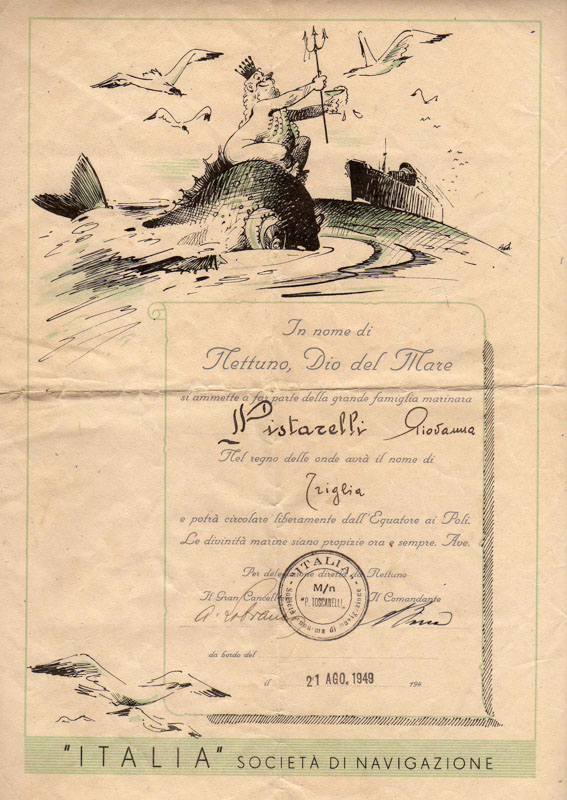 In nome di
Nettuno, Dio del Mare
si ammette a far parte della grande famiglia marinara
Pistarelli Giovanna
Nel regno delle onde avrà il nome di
Triglia
e potrà circolare liberamente dall'Equatore ai Poli.
Le divinità marine siano propizie ora e sempre. Ave.
Per delegazione diretta da Nettuno
Il Gran Cancell Il Comandante
"ITALIA"
M/n
"P. TOSCANELLI"
Società Anonima di Navigazione
da bordo del
il 21 AGO. 1949 194
"ITALIA" SOCIETÀ DI NAVIGAZIONE